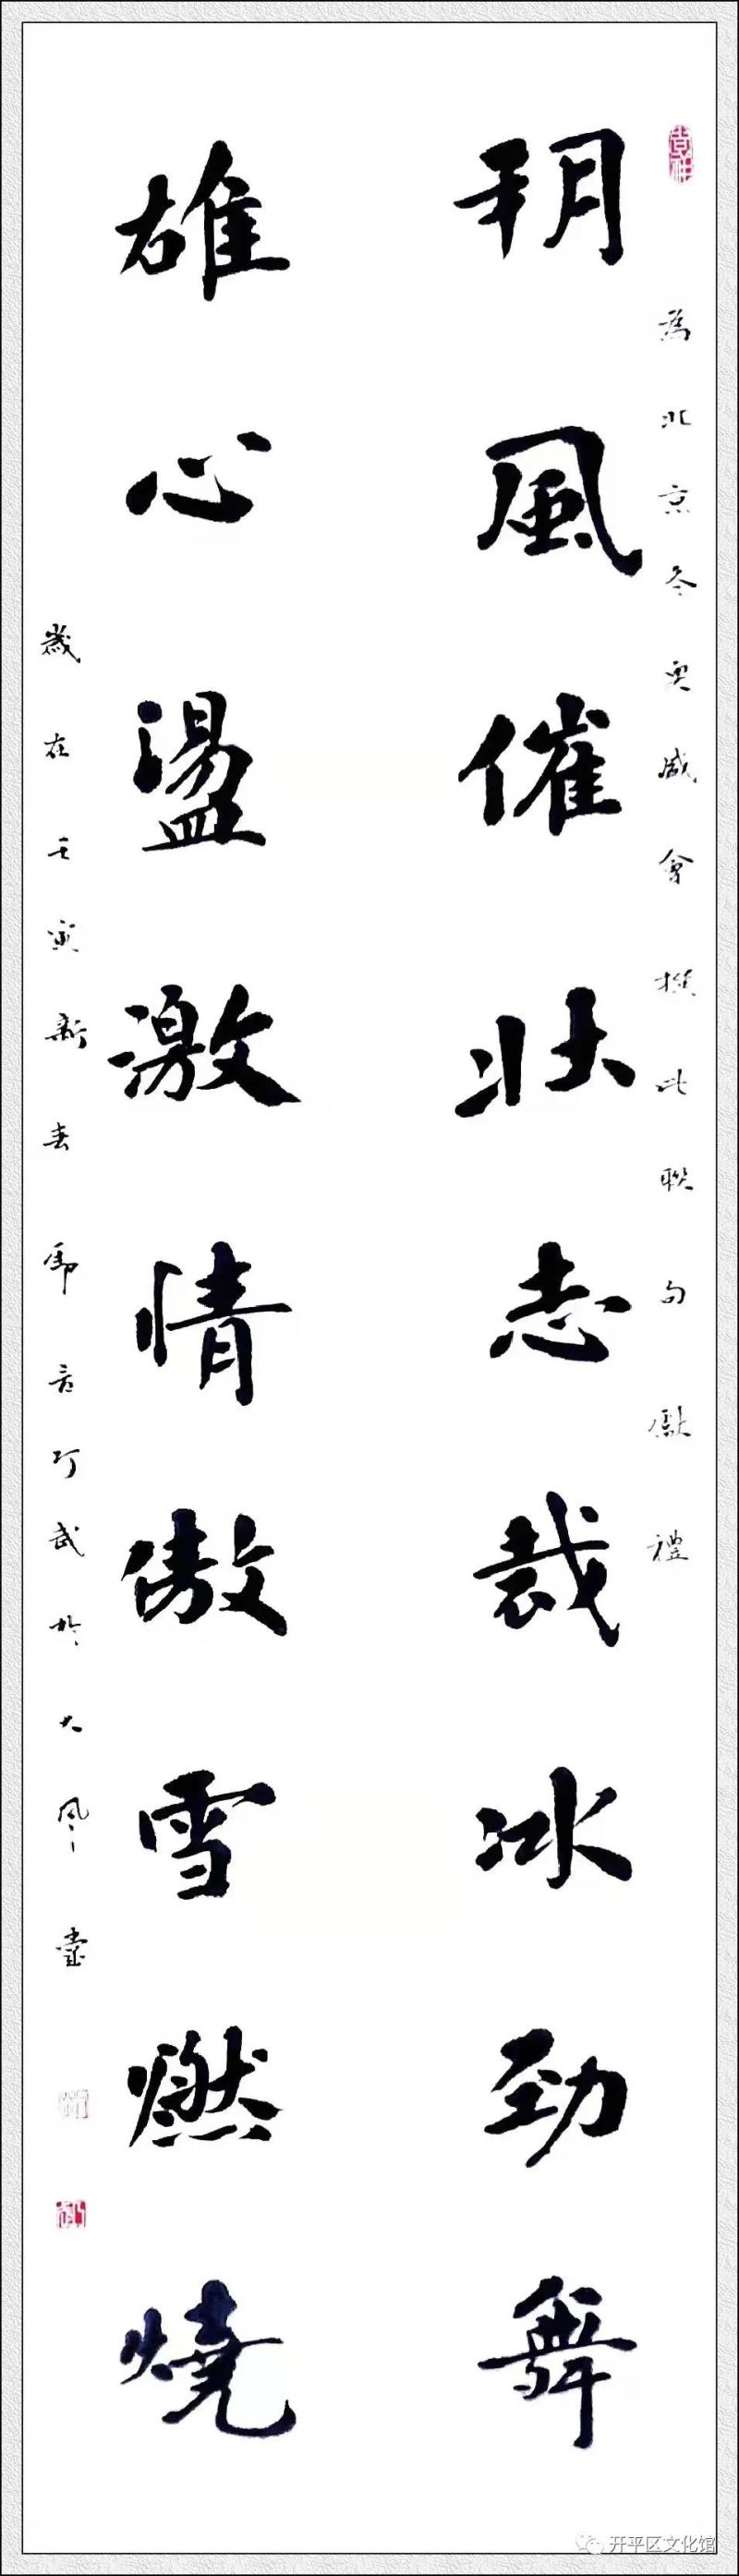 為北京冬奥盛會撰此聯句獻禮
朔風催壯志裁冰勁舞
雄心盪激情傲雪燃燒
歲在壬寅新春武於大風
开平区文化馆